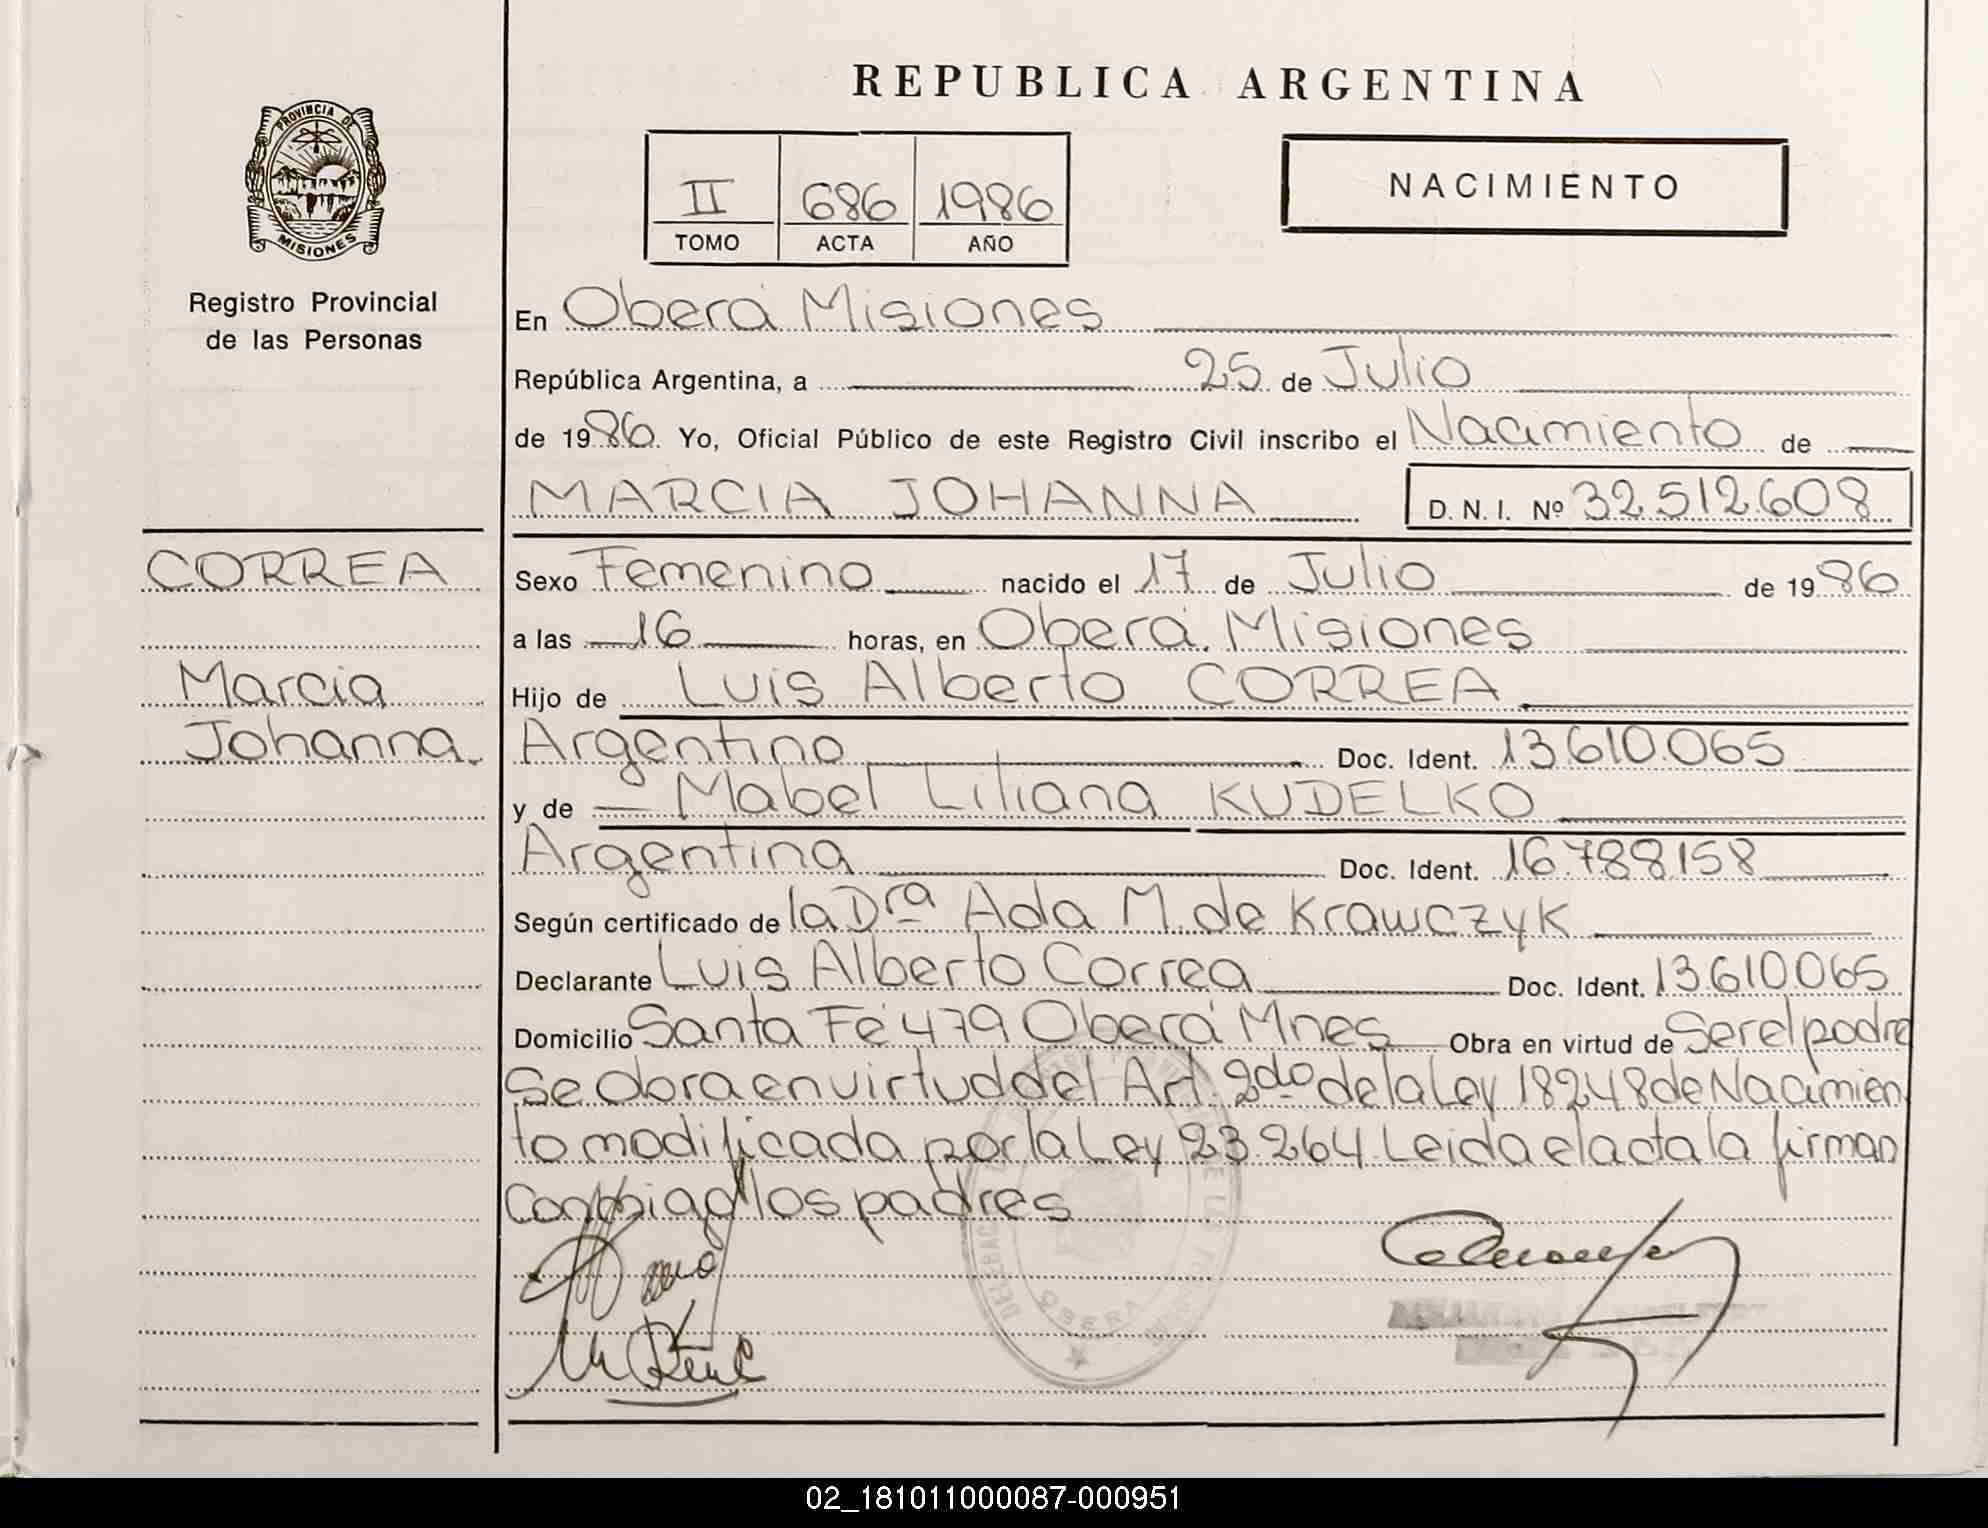 REPUBLICA ARGENTINA
PROVINCIA DE
MISIONES
Registro Provincial
de las Personas
II 686 1986
TOMO ACTA AÑO
NACIMIENTO
En Oberá Misiones
República Argentina, a 25 de Julio
de 1986. Yo, Oficial Público de este Registro Civil inscribo el Nacimiento de
MARCIA JOHANNA D. N. I. Nº 32.512.608
CORREA
Marcia
Johanna.
Sexo Femenino nacido el 17 de Julio de 1986
a las 16 horas, en Oberá. Misiones
Hijo de Luis Alberto CORREA
Argentino Doc. Ident. 13.610.065
y de Mabel Liliana KUDELKO
Argentina Doc. Ident. 16.788.158
Según certificado de la Dra Ada M. de Krawczyk
Declarante Luis Alberto Correa Doc. Ident. 13.610.065
Domicilio Santa Fé 479 Oberá Mnes Obra en virtud de Ser el padre
Se obra en virtud del Art. 2do de la Ley 18248 de Nacimien
to modificada por la Ley 23.264. Leida el acta la firman
Conmigo los padres
OBERA
02_181011000087-000951